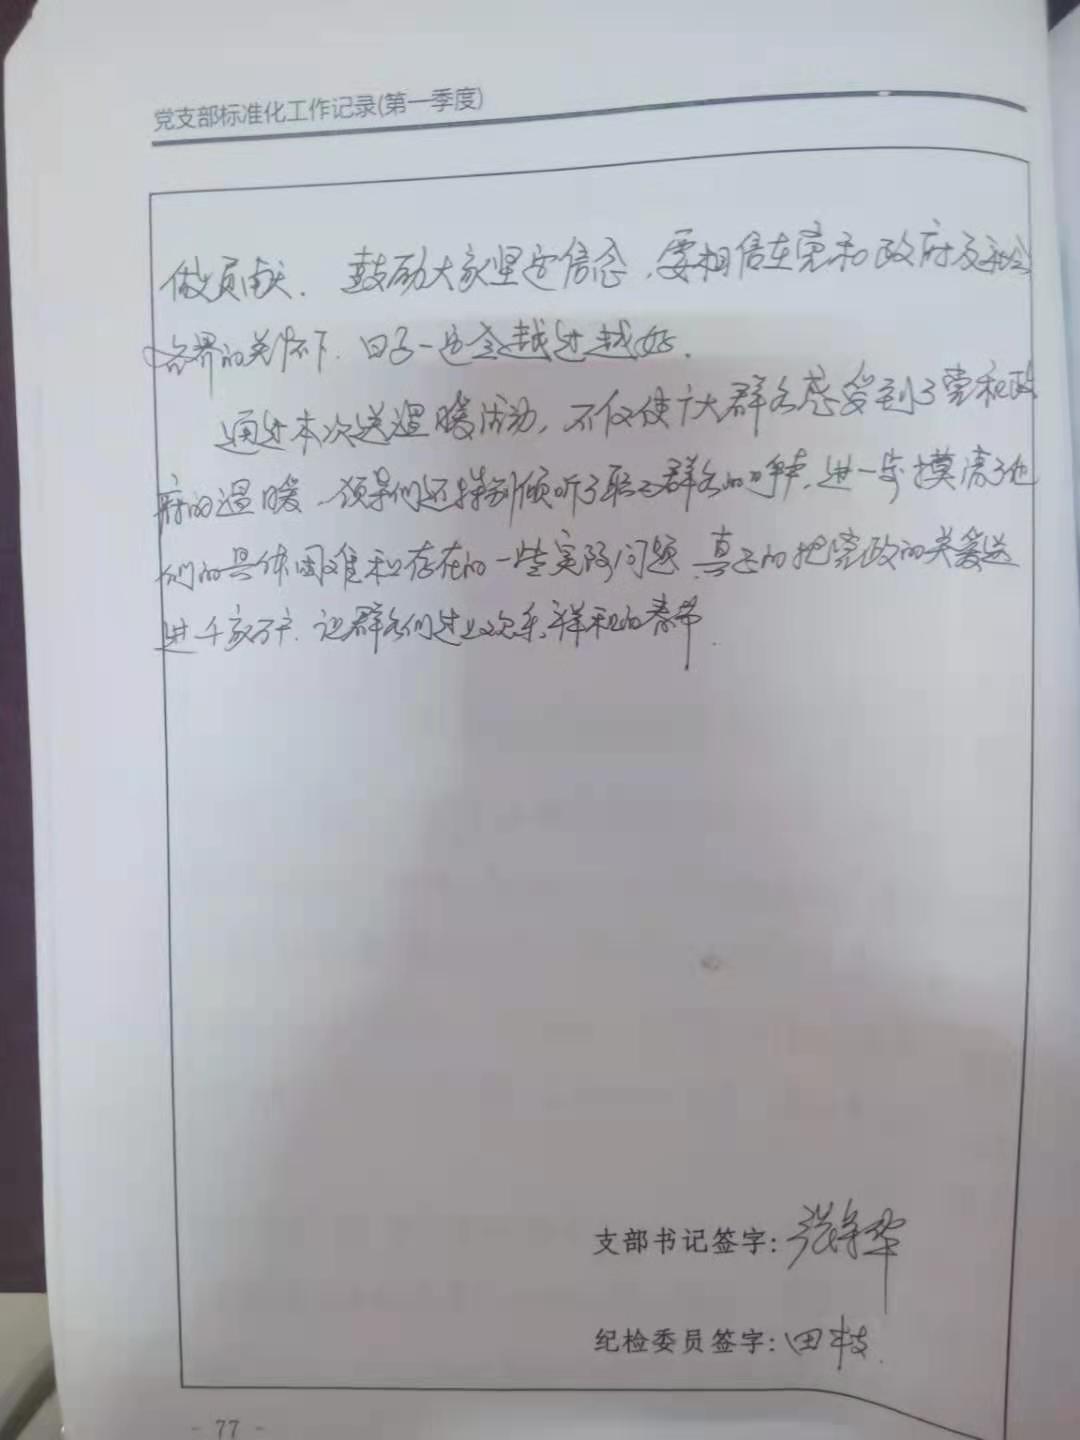 党支部标准化工作记录(第一季度)
做贡献. 鼓励大家坚定信念,要相信在党和政府及社会
各界的关怀下,日子一定会越过越好.
通过本次送温暖活动,不仅使广大群众感受到了党和政
府的温暖,领导们还特别倾听了职工群众的呼声,进一步摸清了他
们的具体困难和存在的一些实际问题,真正的把党政的关爱送
进千家万户,让群众们过上欢乐、祥和的春节.
支部书记签字:张 华
纪检委员签字:田枝
- 77 -